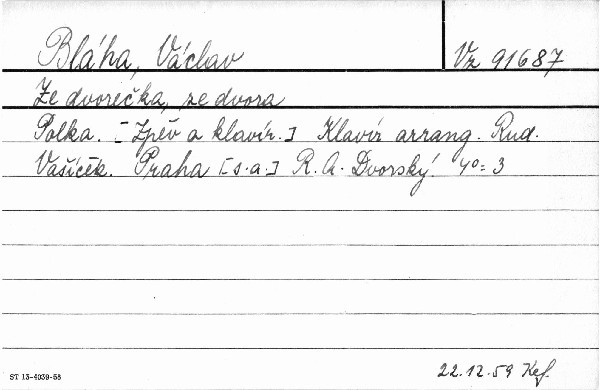 Bláha, Václav
Vz 91687
Ze dvorečka, ze dvora
Polka. [Zpěv a klavír.] Klavír arrang. Rud.
Vašíček. Praha [s.a.] R. A. Dvorský. 4°: 3
ST 13-4039-58
22.12.59 Kef.